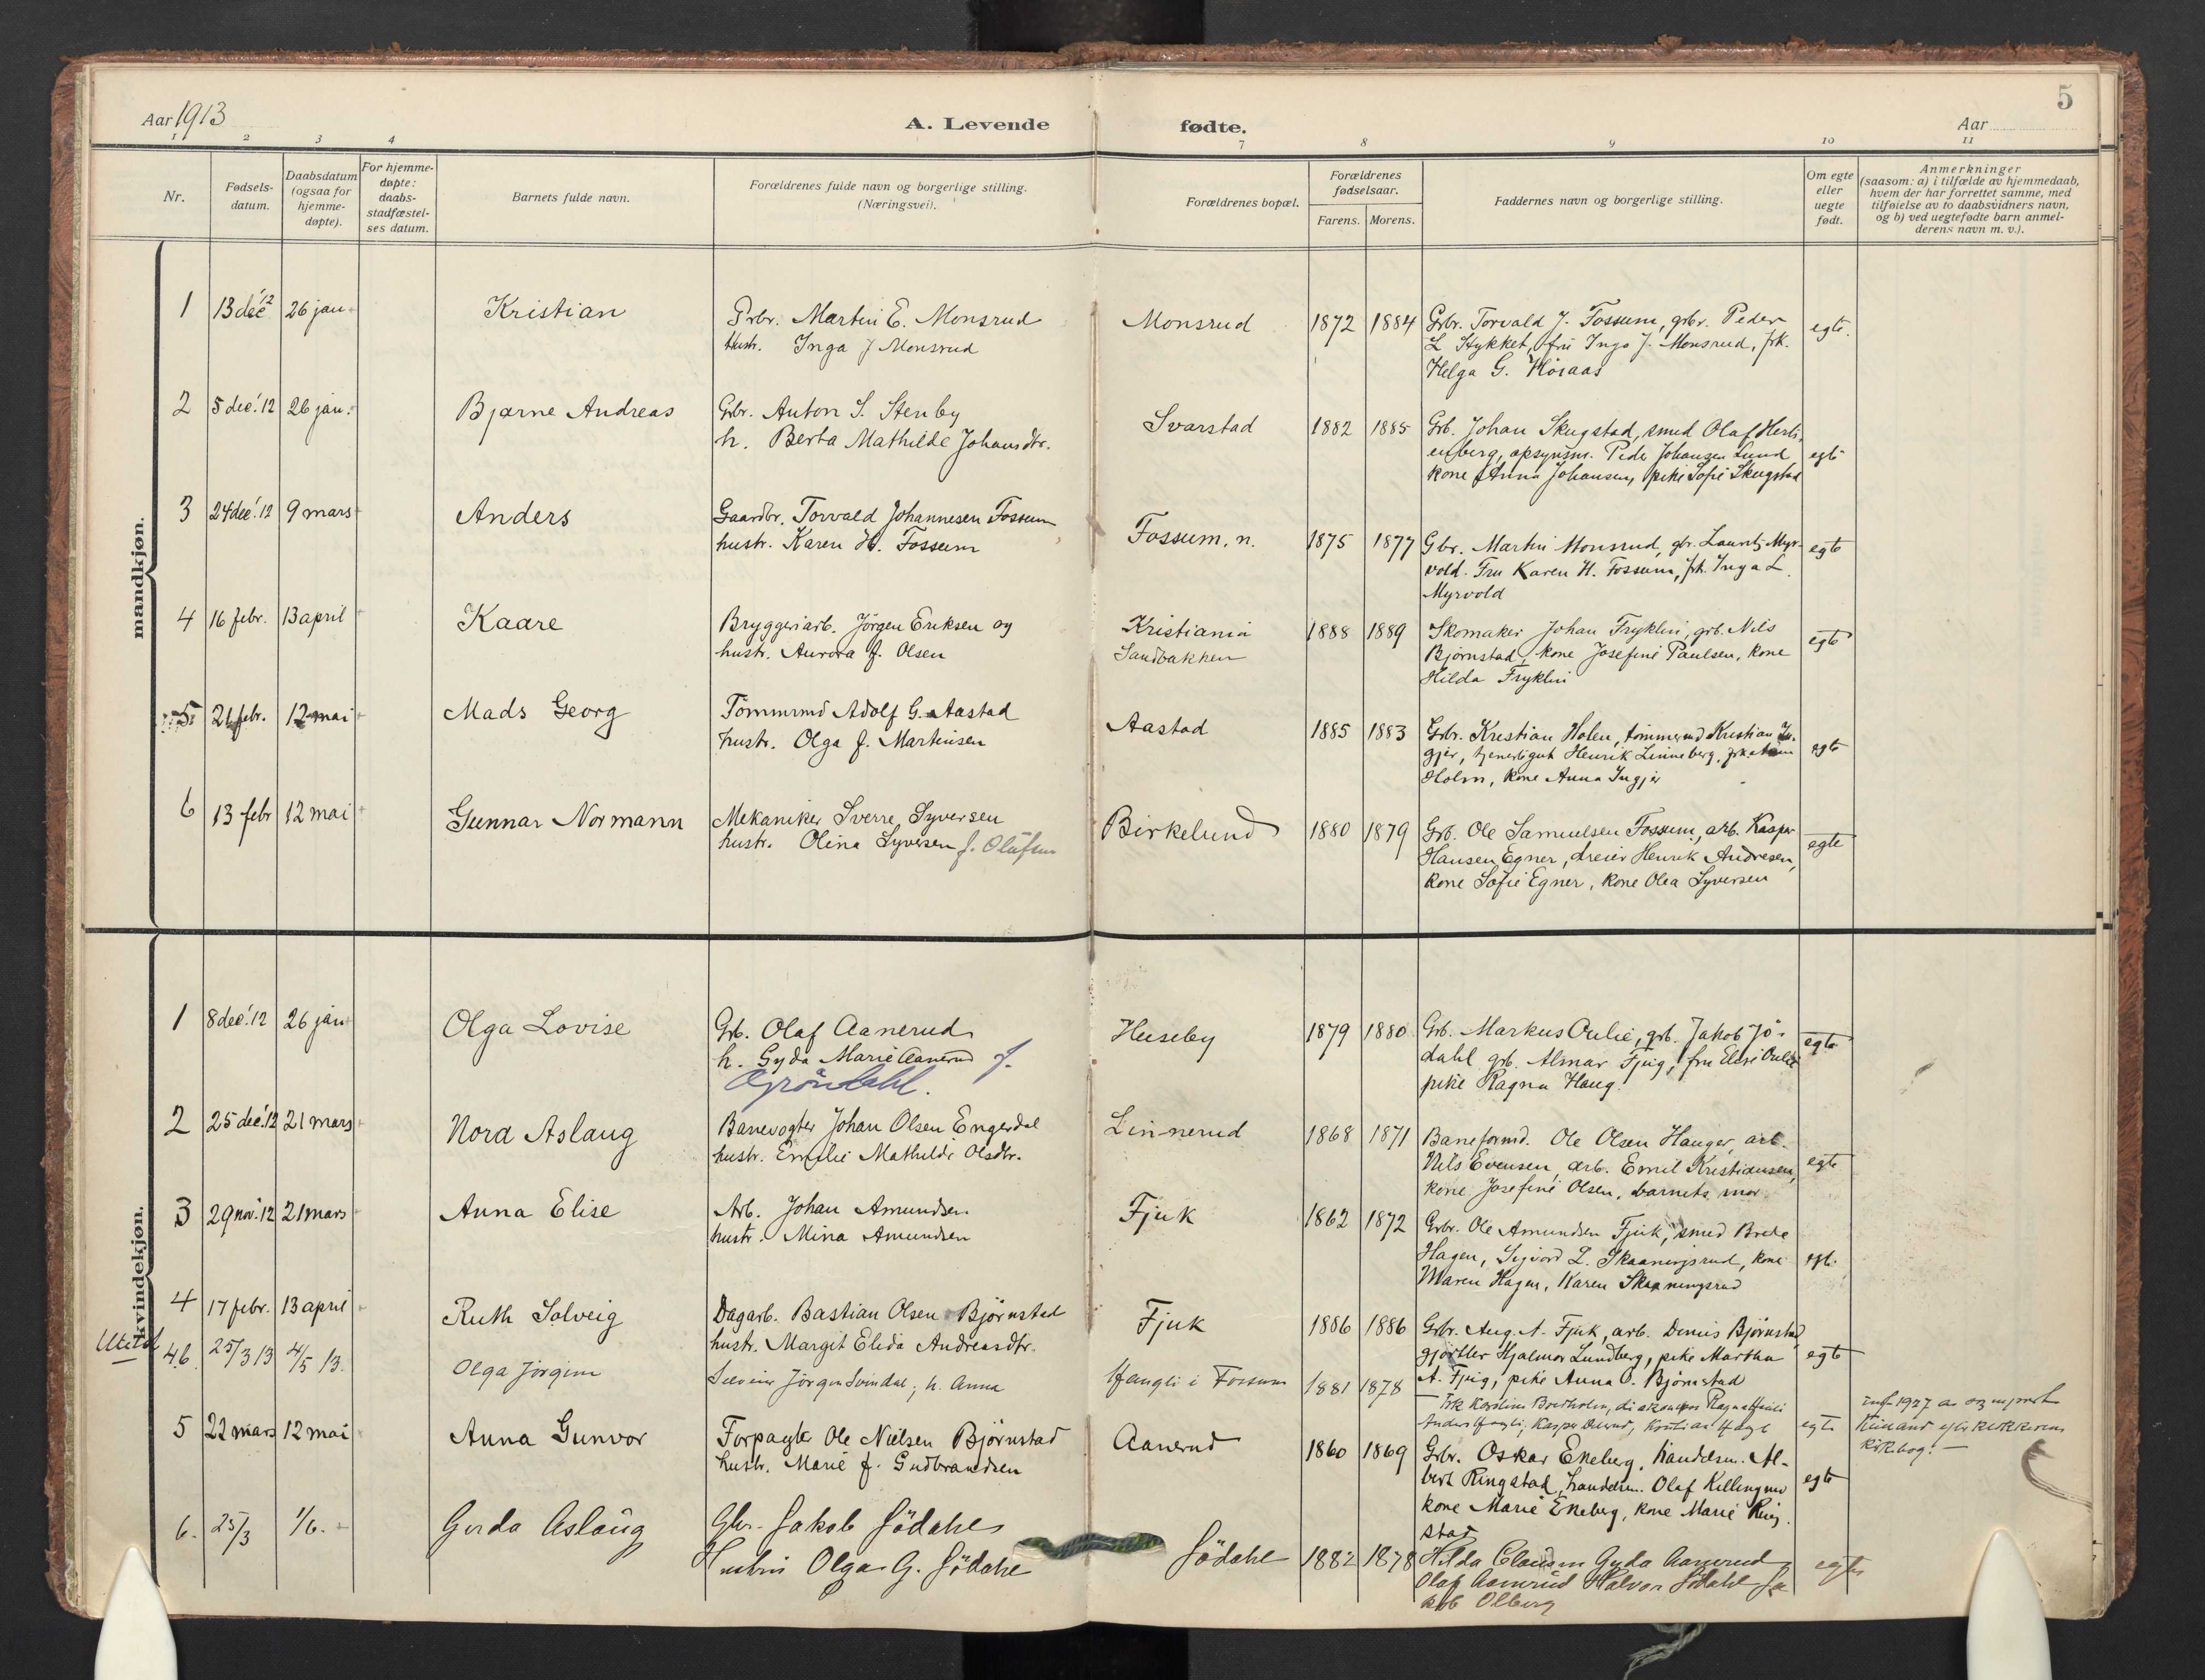 5
Aar 1913
A. Levende fødte.
Aar
1 2 3 4 7 8 9 10 11
Nr.
Fødsels-
datum.
Daabsdatum
(ogsaa for
hjemme-
døpte).
For hjemme-
døpte:
daabs-
stadfæstel-
ses datum.
Barnets fulde navn.
Forældrenes fulde navn og borgerlige stilling.
(Næringsvei).
Forældrenes bopæl.
Forældrenes
fødselsaar.
Farens. Morens.
Faddernes navn og borgerlige stilling.
Om egte
eller
uegte
født.
Anmerkninger
(saasom: a) i tilfælde av hjemmedaab,
hvem der har forrettet samme, med
tilføielse av to daabsvidners navn,
og b) ved uegtefødte barn anmel-
derens navn m. v.).
mandkjøn.
1 13 dec '12 26 jan. Kristian
Grbr. Martin E. Monsrud
hustr. Inga J Monsrud
Monsrud 1872 1884
Grbr. Torvald J. Fossum, grbr. Peder
L Stykket, fru Inga J. Monsrud, frk.
Helga G. Höiaas
egte.
2 5 dec. '12 26 jan. Bjarne Andreas
Grbr. Anton S. Stenby
h. Berta Mathilde Johansdtr.
Svarstad 1882 1885
Grb. Johan Skugstad, smed Olaf Herb-
enberg, opsynsm. Peder Johansen Lund
kone Anna Johansen, pike Sofie Skugstad
egte
3 24 dec. '12 9 mars Anders
Gaardbr. Torvald Johannesen Fossum
hustr. Karen H. Fossum
Fossum, n. 1875 1877
Gbr. Martin Monsrud, gbr. Lauritz Myr-
vold. Fru Karen H. Fossum, frk. Inga L.
Myrvold
egte
4 16 febr. 13 april Kaare
Bryggeriarb. Jörgen Eriksen og
hustr. Aurora f. Olsen
Kristiania
Sandbakken
1888 1889
Skomaker Johan Fryklin, grb. Nils
Bjørnstad, kone Josefine Paulsen, kone
Hilda Fryklin
egte
5 21 febr. 12 mai Mads Georg
Tömmermd Adolf G. Aastad
hustr. Olga f. Martinsen
Aastad 1885 1883
Grbr. Kristian Holen, tömmermd Kristian In-
gjer, tjenestegut Henrik Linneberg, frk.
Holm, kone Anna Ingjer
egte
6 13 febr 12 mai Gunnar Normann
Mekaniker Sverre Syversen
hustr. Olina Syversen f. Olafsen
Birkelund 1880 1879
Grb. Ole Samuelsen Fossum, arb. Kasper
Hansen Egner, dreier Henrik Andresen,
kone Sofie Egner, kone Olea Syversen
egte
kvindekjøn.
1 8 dec. '12 26 jan Olga Lovise
Grb. Olaf Aanerud
h. Gyda Marie Aanerud f.
Gröndahl.
Huseby 1879 1880
Grb. Markus Oulie, grb. Jakob Jö-
dahl grb. Almar Fjug, fru Elise Oulie
pike Ragna Haug.
egte
2 25 dec. '12 21 mars Nora Aslaug
Banevogter Johan Olsen Engerdal
hustr. Emilie Mathilde Olsdtr.
Linnerud 1868 1871
Baneformd. Ole Olsen Hauger, arb.
Nils Evensen, arb. Emil Kristiansen,
kone Josefine Olsen, barnets mor
egte
3 29 nov. 12 21 mars Anna Elise
Arb. Johan Amundsen
hustr. Mina Amundsen
Fjuk 1862 1872
Grbr. Ole Amundsen Fjuk, smed Brede
Hagen, Sigvard L. Skaaningsrud, kone
Maren Hagen, Karen Skaaningsrud
egt.
4 17 febr. 13 april Ruth Solveig
Dagarb. Bastian Olsen Björnstad
hustr. Margit Elida Andreasdtr.
Fjuk 1886 1886
Grbr. Aug. A. Fjuk, arb. Denis Björnstad
gjörtler Hjalmar Lundberg, pike Martha
A. Fjug, pike Anna O. Björnstad
egte
4b. 25/3 13 4/5 13. Olga Jörgine
Jörgen Svindal; h. Anna
i Fossum 1881 1878
egte
5 22 mars 12 mai Anna Gunvor
Forpagter Ole Nielsen Björnstad
hustr. Marie f. Gudbrandsen
Aanerud 1860 1869
Grbr. Oskar Ekeberg, handelsm. Al-
bert Ringstad, handelsm. Olaf Killingmo
kone Marie Ekeberg, kone Marie Ring-
stad
egte
6. 25/3 1/6. Gerda Aslaug
Gbr. Jakob Jödahl
Hustru Olga G. Jödahl
Jödahl 1882 1878
Hilda Clausen Gyda Aanerud
Olaf Aanerud Halvor Jödahl Ja
kob Olberg
egte